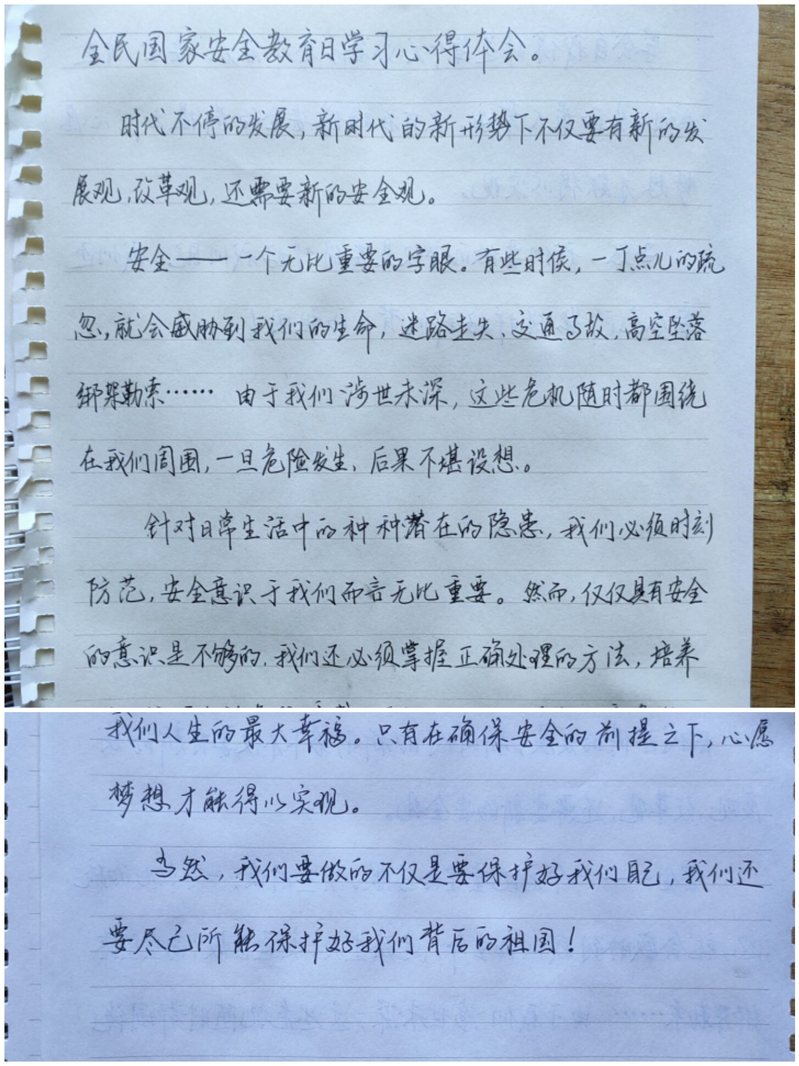 全民国家安全教育日学习心得体会。
时代不停的发展,新时代的新形势下不仅要有新的发
展观,改革观,还需要新的安全观。
安全——一个无比重要的字眼。有些时侯,一丁点儿的疏
忽,就会威胁到我们的生命,迷路走失、交通事故、高空坠落
绑架勒索…… 由于我们涉世未深,这些危机随时都围绕
在我们周围,一旦危险发生,后果不堪设想。
针对日常生活中的种种潜在的隐患,我们必须时刻
防范,安全意识于我们而言无比重要。然而,仅仅具有安全
的意识是不够的,我们还必须掌握正确处理的方法,培养
我们人生的最大幸福。只有在确保安全的前提之下,心愿
梦想才能得以实现。
当然,我们要做的不仅是要保护好我们自己,我们还
要尽己所能保护好我们背后的祖国!